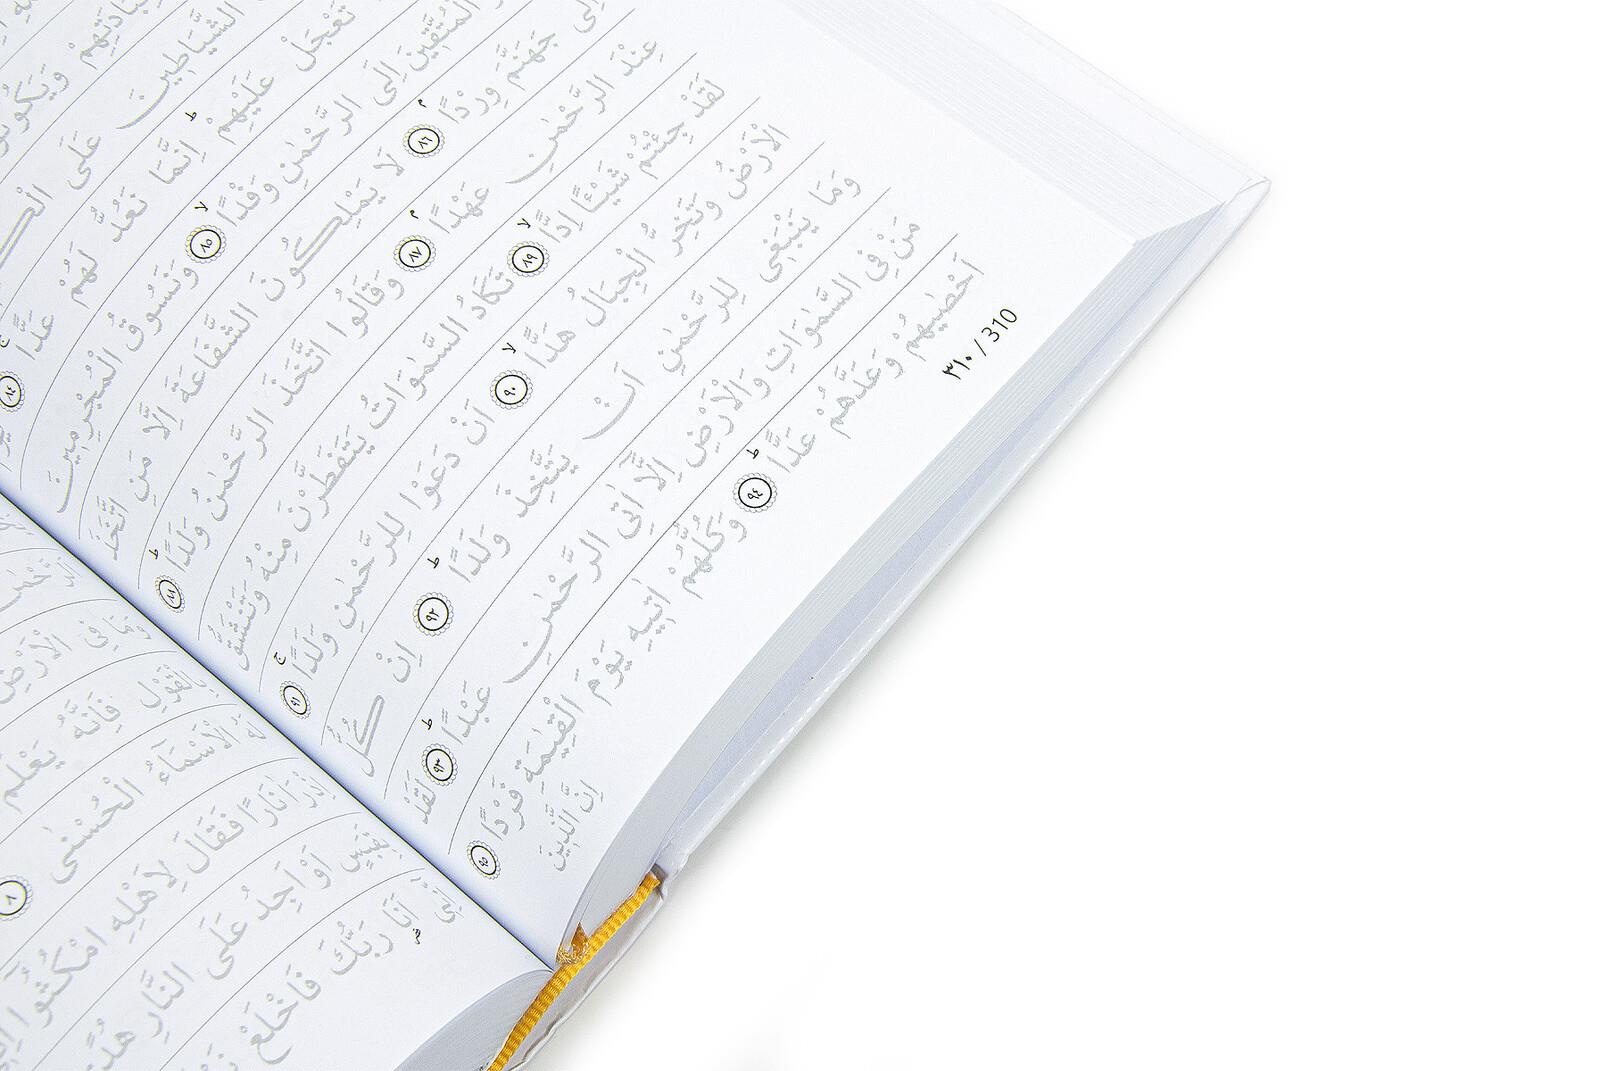 بِعِبَادَتِهِمْ وَيَكُونُو
الشَّيَاطِينَ عَلَى الْكَا
تَعْجَلْ عَلَيْهِمْ ط اِنَّمَا نَعُدُّ لَهُمْ عَدًّا ج ٨٤
الْمُتَّقِينَ اِلَى الرَّحْمٰنِ وَفْدًا لا ٨٥ وَنَسُوقُ الْمُجْرِمِينَ
اِلٰى جَهَنَّمَ وِرْدًا م ٨٦ لَا يَمْلِكُونَ الشَّفَاعَةَ اِلَّا مَنِ اتَّخَذَ
عِنْدَ الرَّحْمٰنِ عَهْدًا م ٨٧ وَقَالُوا اتَّخَذَ الرَّحْمٰنُ وَلَدًا ط ٨٨
لَقَدْ جِئْتُمْ شَيْـًٔا اِدًّا لا ٨٩ تَكَادُ السَّمٰوَاتُ يَتَفَطَّرْنَ مِنْهُ وَتَنْشَقُّ
الْاَرْضُ وَتَخِرُّ الْجِبَالُ هَدًّا لا ٩٠ اَنْ دَعَوْا لِلرَّحْمٰنِ وَلَدًا ج ٩١
وَمَا يَنْبَغِى لِلرَّحْمٰنِ اَنْ يَتَّخِذَ وَلَدًا ط ٩٢ اِنْ كُلُّ
مَنْ فِى السَّمٰوَاتِ وَالْاَرْضِ اِلَّا اٰتِى الرَّحْمٰنِ عَبْدًا ط ٩٣ لَقَدْ
اَحْصٰيهُمْ وَعَدَّهُمْ عَدًّا ط ٩٤ وَكُلُّهُمْ اٰتِيهِ يَوْمَ الْقِيٰمَةِ فَرْدًا ٩٥ اِنَّ الَّذِينَ
٣١٠ / 310
وَمَا فِى الْاَرْضِ
بِالْقَوْلِ فَاِنَّهُ يَعْلَمُ
لَهُ الْاَسْمَآءُ الْحُسْنٰى ٨
اِذْ رَاٰ نَارًا فَقَالَ لِاَهْلِهِ امْكُثُٓوا
بِقَبَسٍ اَوْ اَجِدُ عَلَى النَّارِ هُدًى
اِنِّٓى اَنَا رَبُّكَ فَاخْلَعْ